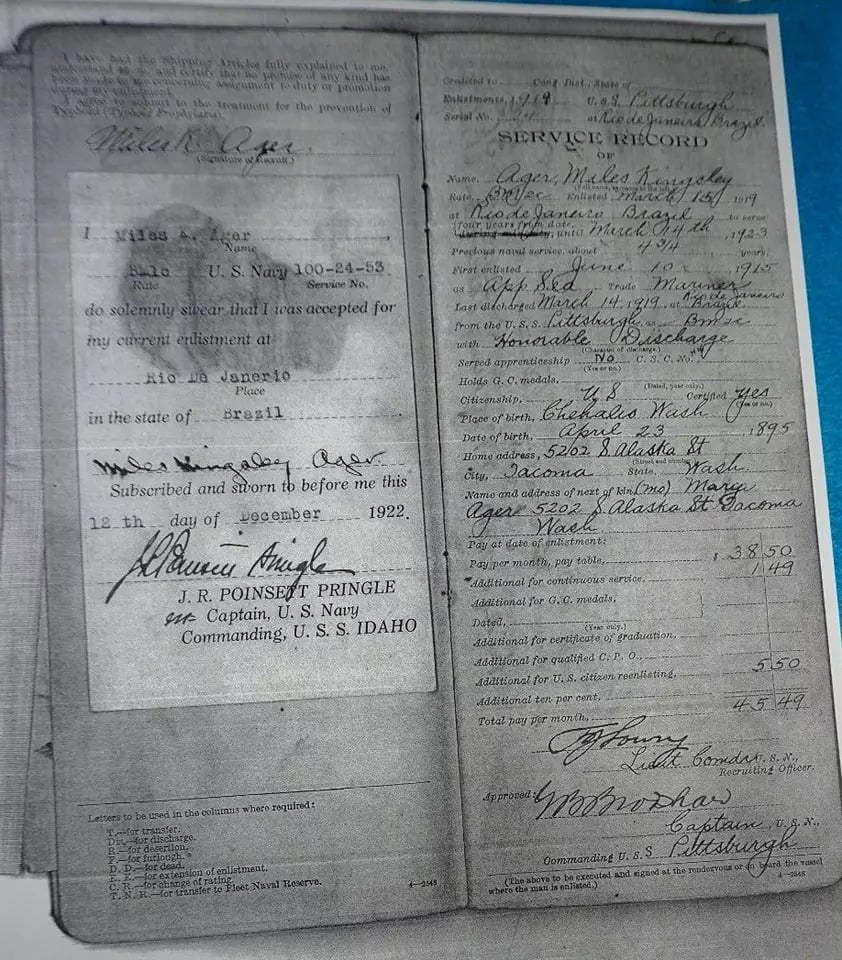 I have had the Shipping Articles fully explained to me,
understand them, and certify that no promise of any kind has
been made to me concerning assignment to duty or promotion
during my enlistment.
I agree to submit to the treatment for the prevention of
Typhoid (Typhoid Prophylaxis).
Miles K. Ager.
(Signature of Recruit.)
I Miles K. Ager,
Name
BM1c U. S. Navy 100-24-53
Rate Service No.
do solemnly swear that I was accepted for
my current enlistment at
Rio De Janerio
Place
in the state of Brazil
Miles Kingsley Ager
Subscribed and sworn to before me this
12 th day of December 1922.
J. R. Poinsett Pringle
J. R. POINSETT PRINGLE
Captain, U. S. Navy
Commanding, U. S. S. IDAHO
Letters to be used in the columns where required:
T.—for transfer.
Dis.—for discharge.
R.—for desertion.
F.—for furlough.
D. D.—for dead.
E. E.—for extension of enlistment.
C. R.—for change of rating.
T. N. R.—for transfer to Fleet Naval Reserve.
4—2548
Credited to Cong. Dist., State of
Enlistments, 1919 U.S.S. Pittsburgh
Serial No. at Rio de Janeiro, Brazil.
SERVICE RECORD
OF
Name, Ager, Miles Kingsley
Rate, BM2c Enlisted March 15, 1919
at Rio de Janeiro Brazil to serve
four years from date
during minority, until March 14th, 1923
Previous naval service, about 4 3/4 years.
First enlisted June 10, 1915
as App Sea Trade Mariner
Last discharged March 14, 1919, at Rio de Janeiro Brazil
from the U. S. S. Pittsburgh as BM2c
with Honorable Discharge
(Character of discharge.)
Served apprenticeship No C. S. C. No.
(Yes or no.)
Holds G. C. medals,
(Dated, year only.)
Citizenship, U S Certified yes
(Yes or no.)
Place of birth, Chehalis Wash
Date of birth, April 23, 1895
Home address, 5202 S. Alaska St
(Street and number.)
City, Tacoma State, Wash
Name and address of next of kin (mo) Marya
Ager 5202 S. Alaska St Tacoma
Wash
Pay at date of enlistment:
Pay per month, pay table, $ 38 50
Additional for continuous service, 1 49
Additional for G. C. medals,
Dated,
(Year only.)
Additional for certificate of graduation,
Additional for qualified C. P. O.,
Additional for U. S. citizen reenlisting, 5 50
Additional ten per cent,
Total pay per month, 45 49
Lieut Comdr U. S. N.,
Recruiting Officer.
Approved:
Captain, U. S. N.,
Commanding U. S. S Pittsburgh
(The above to be executed and signed at the rendezvous or on board the vessel
where the man is enlisted.)
4—2548